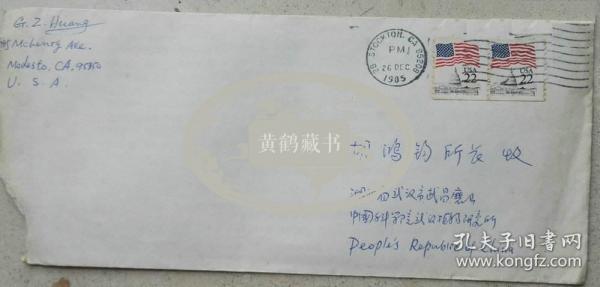 G. Z. Huang
McHenry Ave.
Modesto, CA, 95350
U. S. A.
STOCKTON, CA 952
PM
26 DEC
1985
USA
22
USA
22
黄鹤藏书
胡鸿钧所长 收
武汉市武昌
中国科学院武汉植物研究所
People's Republic of China
孔夫子旧书网
www.kongfz.com